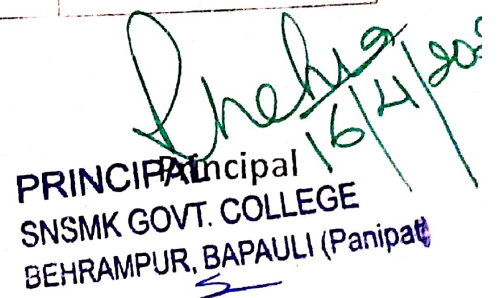 16/4/202
Principal
PRINCIPAL
SNSMK GOVT. COLLEGE
BEHRAMPUR, BAPAULI (Panipat)